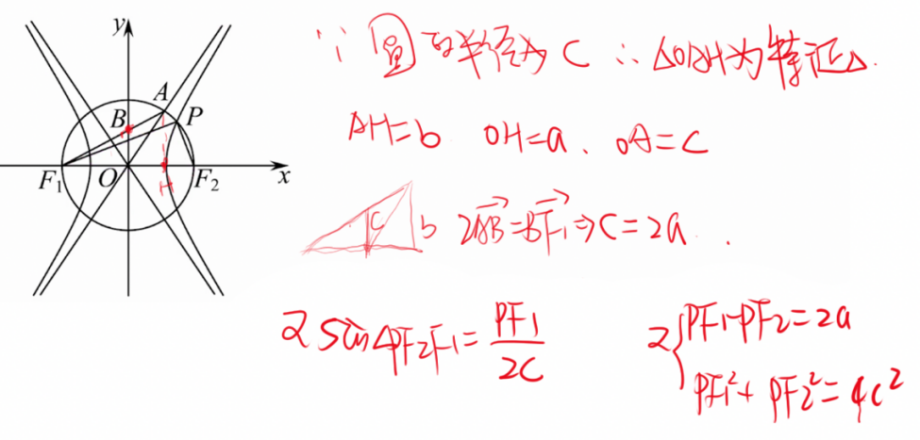 y
A
B
P
F₁
O
H
F₂
x
∵圆的半径为C ∴△OAH为特征△.
AH=b OH=a、OA=c
c
b
2AB→=BF₁→⇒C=2a.
2 sin∠PF₂F₁=PF₁/2C
2{PF₁-PF₂=2a
PF₁²+PF₂²=4c²